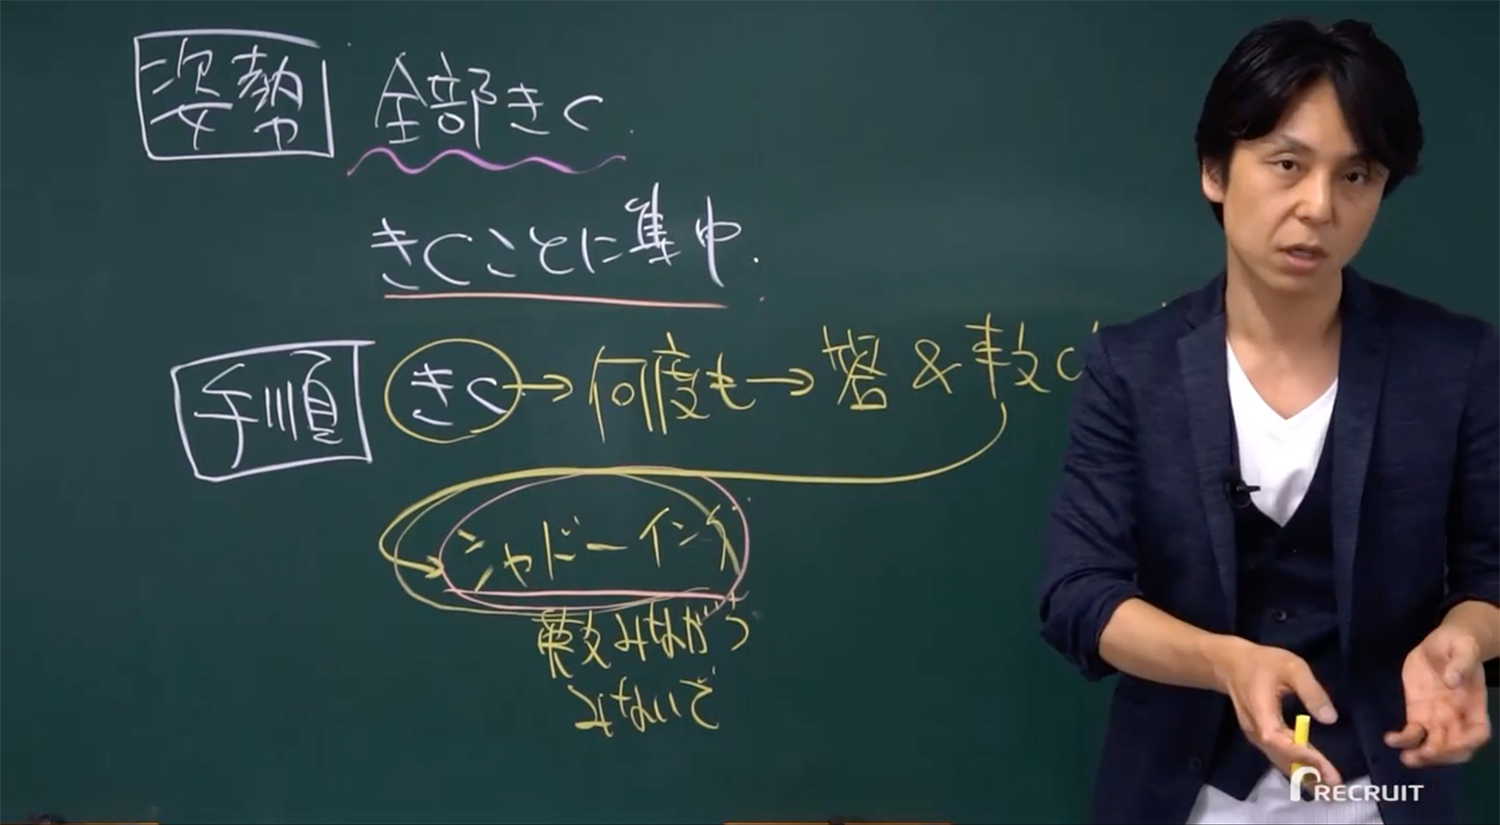 姿勢 全部きく.
きくことに集中.
手順 きく→何度も→答&
シャドーイング
みながら
みないで
RECRUIT